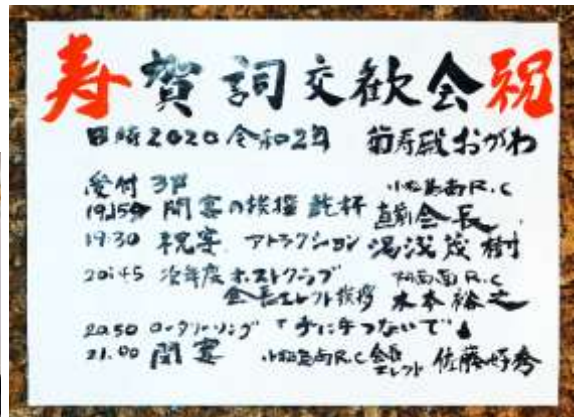 寿 賀詞交歓会 祝
日時 2020 令和2年
受付 3F 小松島南R.C
19:15 開宴の挨拶 乾杯 直前会長
19:30 祝宴 アトラクション 湯浅茂樹
20:45 次年度ホストクラブ 阿南南R.C
会長エレクト挨拶 木本裕之
20:50 ロータリーソング 「手に手つないで」
21:00 閉宴 小松島南R.C 会長エレクト 佐藤好秀